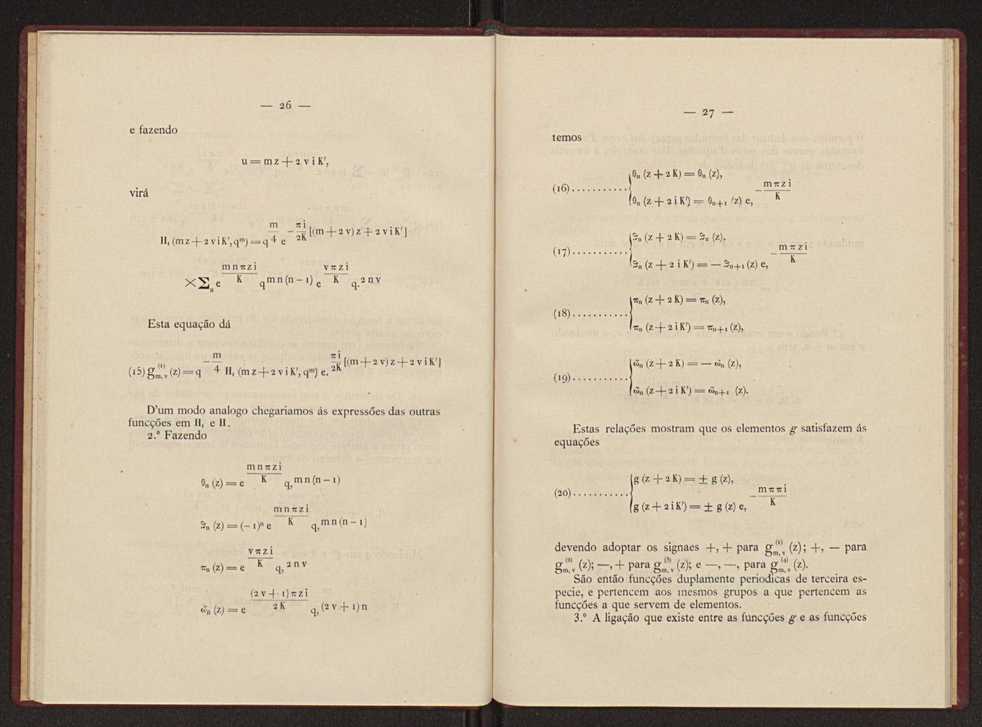 — 26 —
e fazendo
u = m z + 2 v i K',
virá
H₁ (m z + 2 v i K', qᵐ) = q^{m/4} e^{− πi/2K [(m + 2 v) z + 2 v i K']}
× Σₙ e^{m n π z i / K} q^{m n (n − 1)} e^{v π z i / K} q.^{2 n v}
Esta equação dá
(15) g^{(1)}_{m, v} (z) = q^{− m/4} H₁ (m z + 2 v i K', qᵐ) e.^{πi/2K [(m + 2 v) z + 2 v i K']}
D'um modo analogo chegariamos ás expressões das outras
funcções em H₁ e H.
2.º Fazendo
θₙ (z) = e^{m n π z i / K} q,^{m n (n − 1)}
ℨₙ (z) = (− 1)ⁿ e^{m n π z i / K} q,^{m n (n − 1)}
πₙ (z) = e^{v π z i / K} q,^{2 n v}
ω̃ₙ (z) = e^{(2 v + 1) π z i / 2 K} q,^{(2 v + 1) n}
— 27 —
temos
(16).......... { θₙ (z + 2 K) = θₙ (z),
θₙ (z + 2 i K') = θₙ₊₁ (z) e,^{− m π z i / K}
(17).......... { ℨₙ (z + 2 K) = ℨₙ (z),
ℨₙ (z + 2 i K') = — ℨₙ₊₁ (z) e,^{− m π z i / K}
(18).......... { πₙ (z + 2 K) = πₙ (z),
πₙ (z + 2 i K') = πₙ₊₁ (z),
(19).......... { ω̃ₙ (z + 2 K) = — ω̃ₙ (z),
ω̃ₙ (z + 2 i K') = ω̃ₙ₊₁ (z).
Estas relações mostram que os elementos g satisfazem ás
equações
(20).......... { g (z + 2 K) = ± g (z),
g (z + 2 i K') = ± g (z) e,^{− m π π i / K}
devendo adoptar os signaes +, + para g^{(1)}_{m, v} (z); +, — para
g^{(2)}_{m, v} (z); —, + para g^{(3)}_{m, v} (z); e —, —, para g^{(4)}_{m, v} (z).
São então funcções duplamente periodicas de terceira es-
pecie, e pertencem aos mesmos grupos a que pertencem as
funcções a que servem de elementos.
3.º A ligação que existe entre as funcções g e as funcções